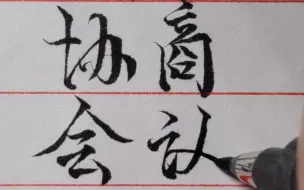 协商
会议